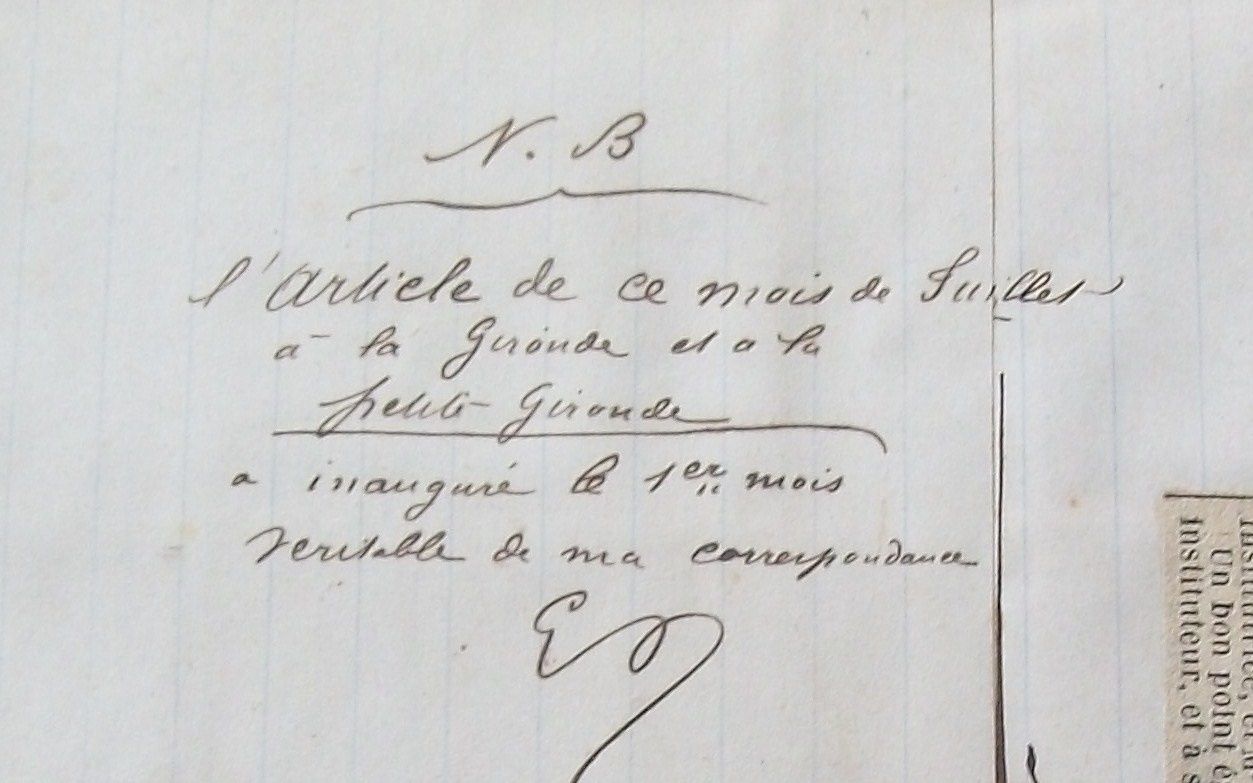 N. B
l'Article de ce mois de Juillet
à la Gironde et a la
petite Gironde
a inauguré le 1er mois
veritable de ma correspondance
Un bon point
Instituteur, et à s